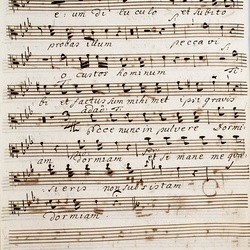 e: um di lu culo et subito
probas illum peccavi
o custos hominum ti
bi et factus sum mihi met ipsi gravis
Ecce nunc in pulvere Dormi
am Dormiam et se mane me quae
sieris non subsistam
dormiam